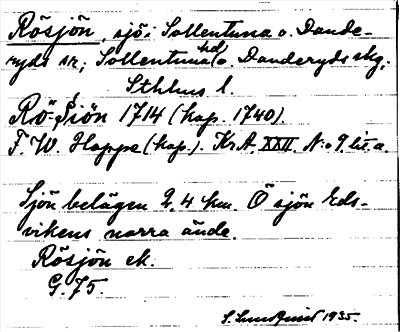 Rösjön, sjö i Sollentuna o. Dande-
ryds sr; Sollentuna hd o. Danderyds skg,
Sthlms l.
Rö-Siön 1714 (kop. 1740).
F. W. Hoppe (kop.). Kr.A. XXII. N:o 9 lit. a.
Sjön belägen 2,4 km. Ö sjön Eds-
vikens norra ände.
Rösjön ek.
G. 75.
S. Lundquist 1935.